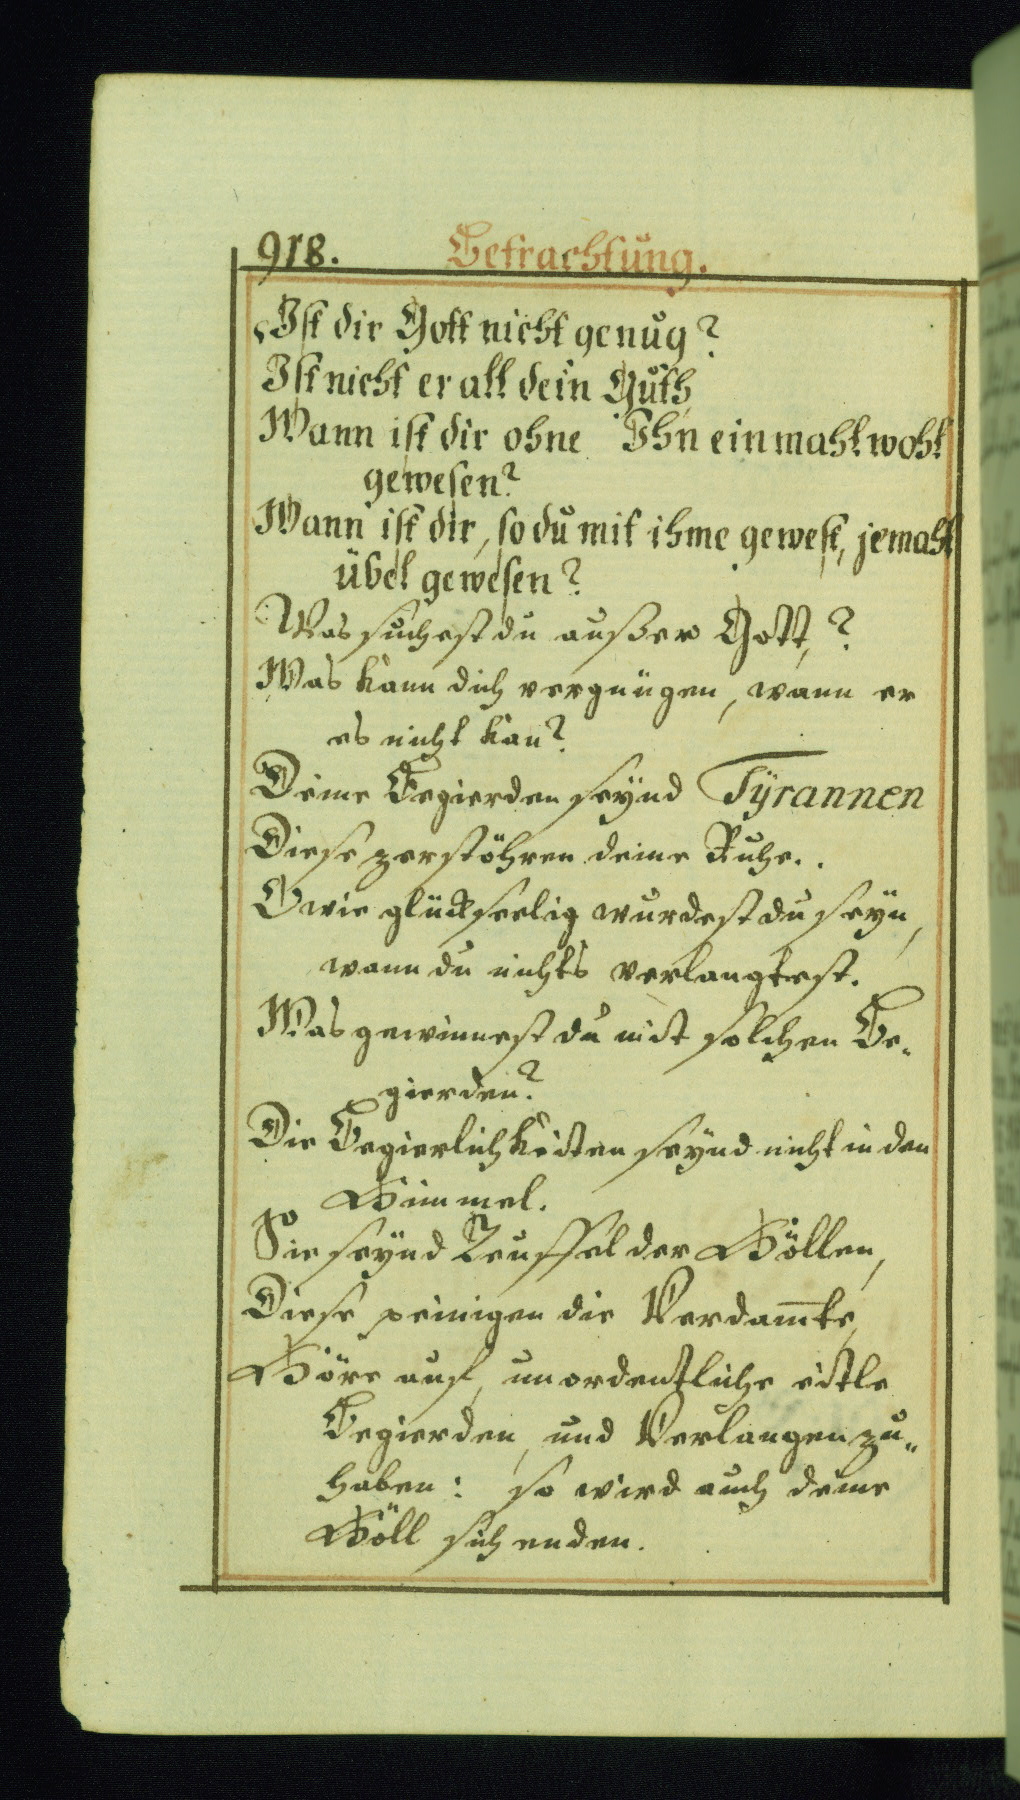 918. Betrachtung.
Ist dir Gott nicht genug?
Ist nicht er all dein Guth
Wann ist dir ohne Ihn einmahl wohl
gewesen?
Wann ist dir, so du mit ihme gewest, jemahl
übel gewesen?
Was suchest du außer Gott,?
Was kann dich vergnügen, wann er
es nicht kan?
Deine Begierden seynd Tÿrannen
Diese zerstöhren deine Ruhe..
O wie glückseelig wurdest du seyn,
wann du nichts verlangtest.
Was gewinnest du mit solchen Be„
gierden?
Die Begierlichkeiten seynd nicht in den
Himmel.
Sie seynd Teuffel der Höllen,
Diese peinigen die Verdam̄te,
Höre auf, unordentliche eitle
Begierden, und Verlangen zu„
haben: so wird auch deine
Höll sich enden.